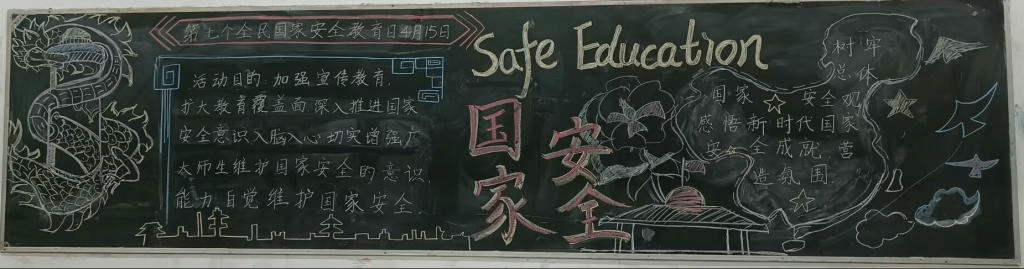 第七个全民国家安全教育日4月15日
活动目的:加强宣传教育,
扩大教育覆盖面深入推进国家
安全意识入脑入心,切实增强广
大师生维护国家安全的意识,
能力,自觉维护国家安全。
Safe Education
国家
安全
树牢
总体
国家 安全观
感悟新时代国家
安全成就,营
造氛围